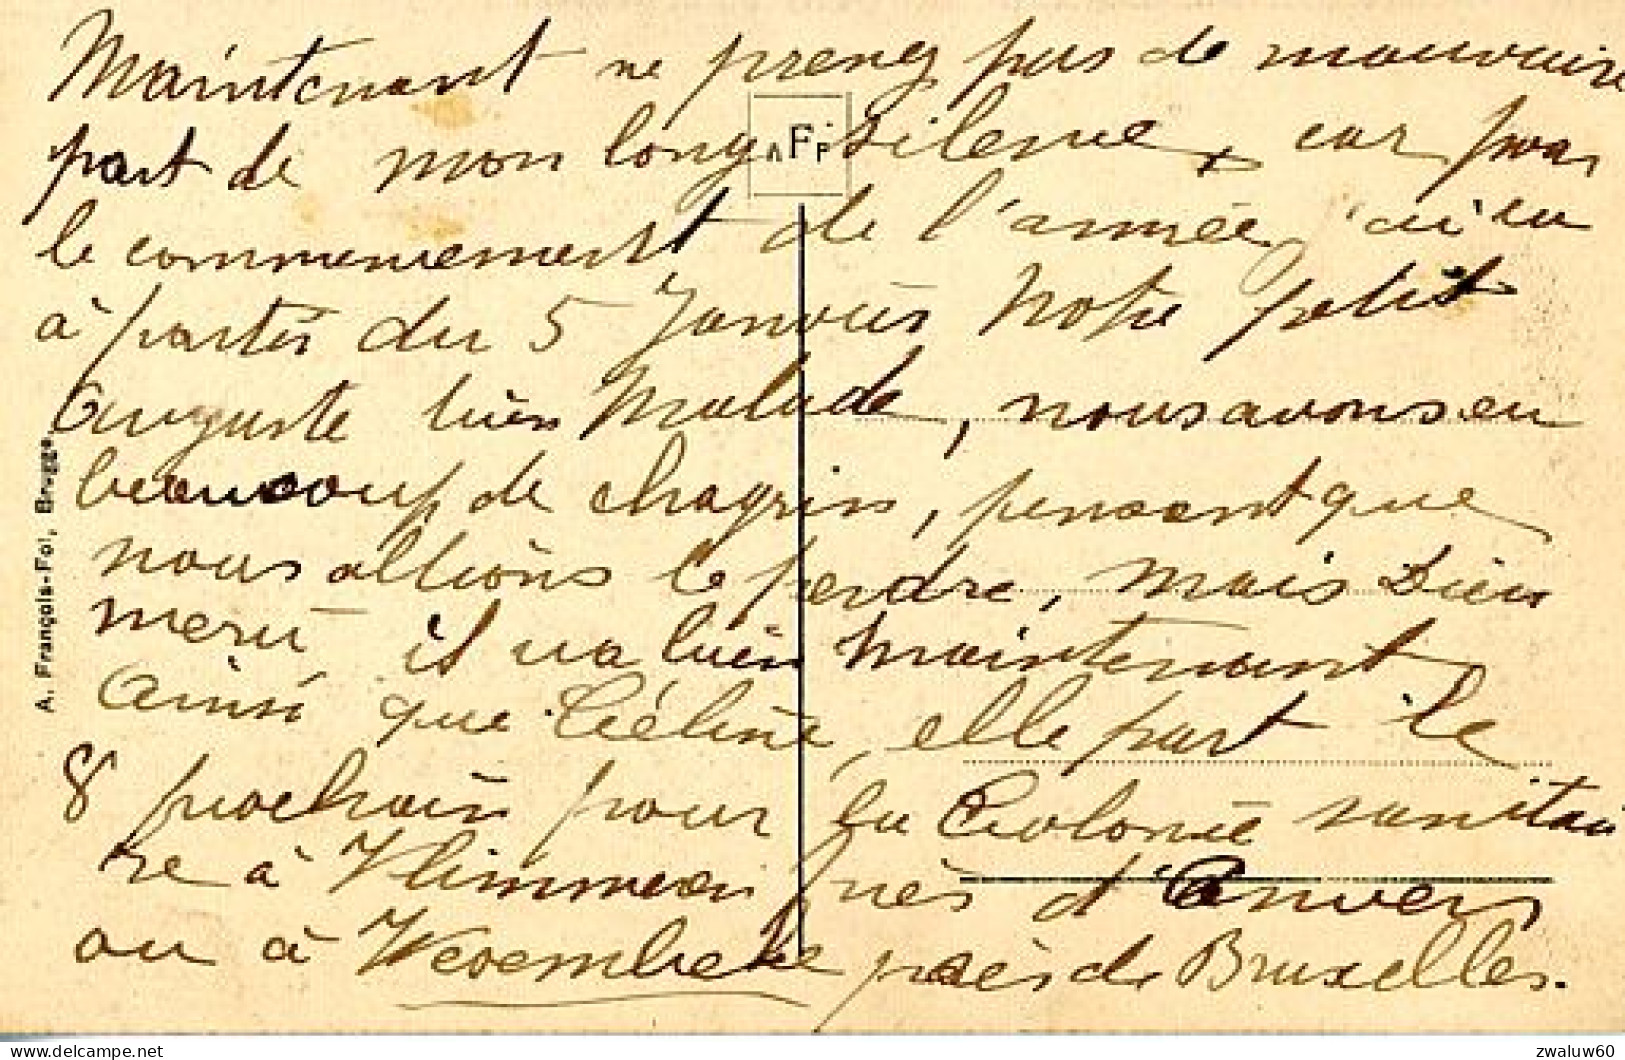 Maintenant ne prenez pas de mauvaise
part de mon long silence, car pour
le commencement de l'année j'ai eu
à partir du 5 Janvier Notre petit
Auguste bien Malade, nous avons eu
beaucoup de chagrin, pensant que
nous allions le perdre, Mais Dieu
merci il va bien maintenant
Ainsi que Céline, elle part le
8 prochain pour la Colonie sanitai
re à près d'Anvers
ou à Wesembeke près de Bruxelles.
A. François-Fol, Brugge
AFP
delcampe.net
zwaluw60